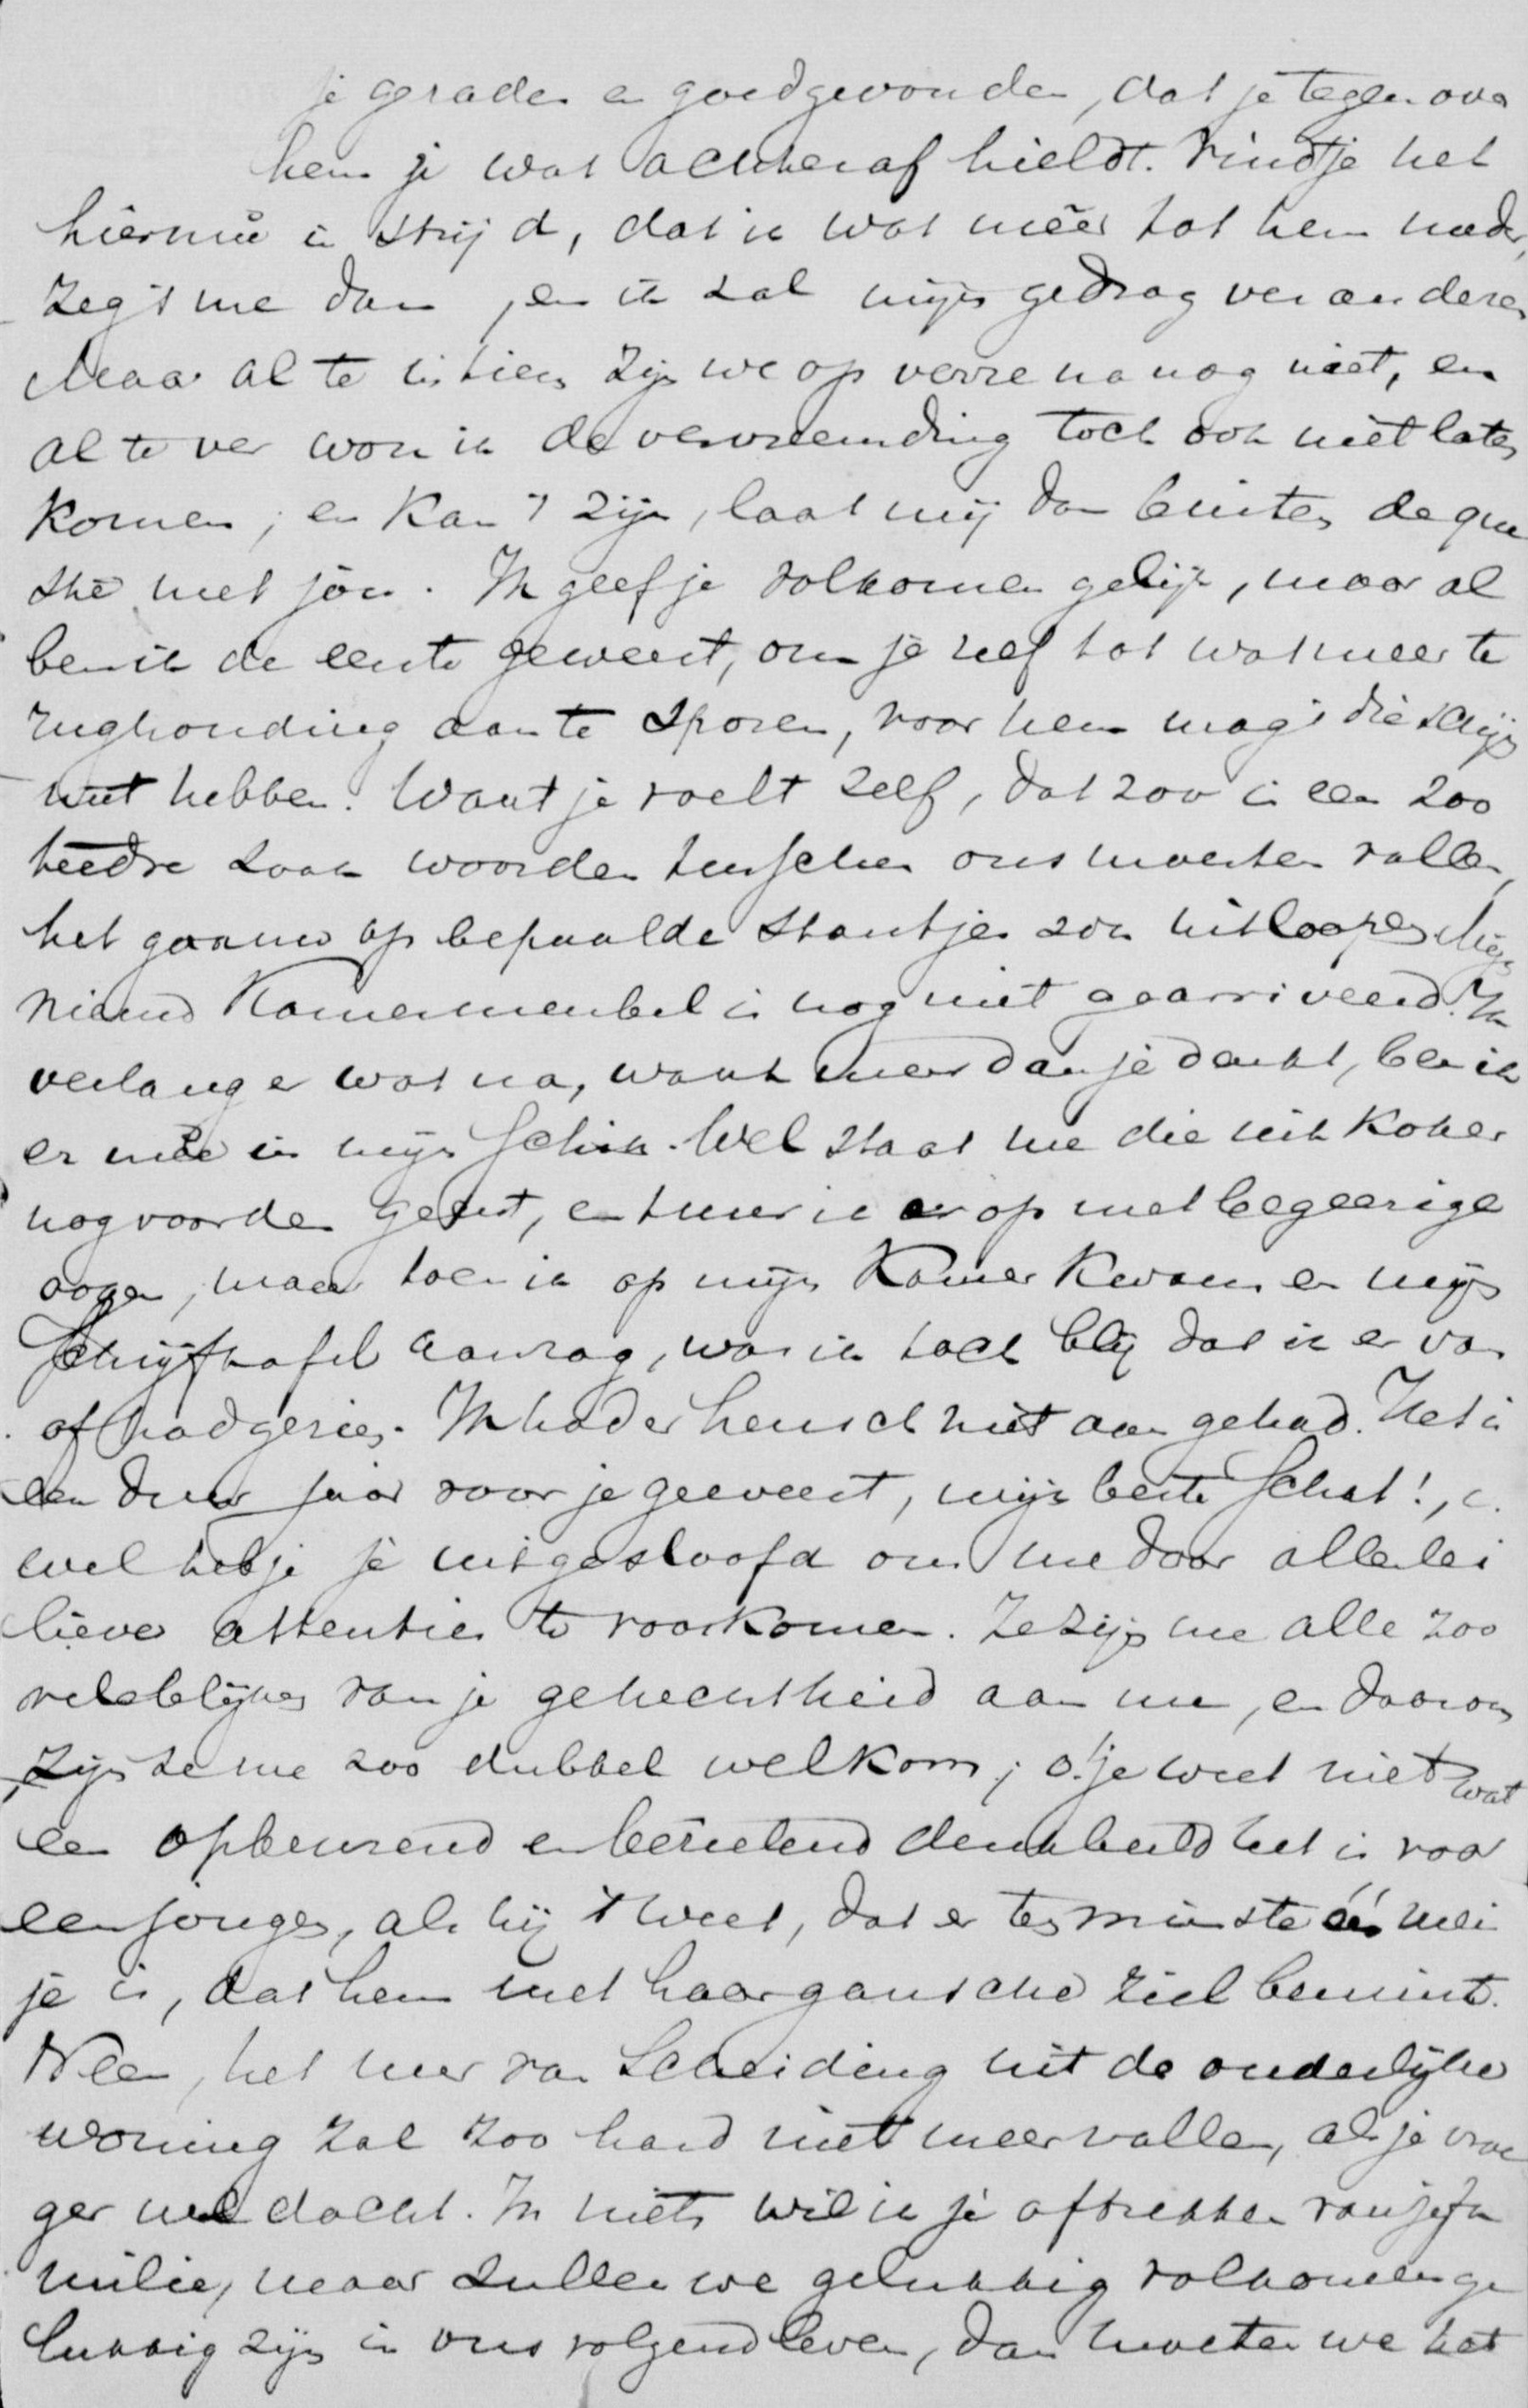 je geraden en goedgevonden, dat je tegenover
hem je wat achteraf hieldt. Vindt je het
hiermeê in strijd, dat ik wat méér tot hem nader,
zeg 't me dan, en ik zal mijn gedrag veranderen
Maar al te intiem zijn we op verre na nog niet, en
al te ver wou ik de vervreemding toch ook niet laten
komen; en kan 't zijn, laat mij dan buiten de que
stie met jou. Ik geef je volkomen gelijk, maar al
ben ik de eerste geweest, om je zelf tot wat meer te
rughouding aan te sporen, voor hem mag 't die schijn
niet hebben. Want je voelt zelf, dat zoo in een zoo
teedre zaak woorden tusschen ons moesten vallen,
het gaauw op bepaalde standjes zou uitloopen. Mijn
nieuwd Kamermeubel is nog niet gearriveerd. Ik
verlang er wat na, want meer dan je denkt, ben ik
er meê in mijn schik. Wel staat me die uitkoker
nog voor den geest, en tuur ik er op met begeerige
oogen, maar toen ik op mijn Kamer kwam en mijn
Schrijftafel aanzag, was ik toch blij dat ik er van
af had gezien. Ik had er heusch niet aan gehad. Het is
een duur jaar voor je geweest, mijn beste Schat!,
wel heb je je uitgesloofd om me door allerlei
lieve attenties te voorkomen. Ze zijn me alle zoo
vele blijken van je gehechtheid aan me, en daarom
zijn ze me zoo dubbel welkom; o! je weet niet wat
een opbeurend en bezielend denkbeeld het is voor
een jongen, als hij 't weet, dat er ten minste één mei
je is, dat hem met haar gansche ziel bemint.
Neen, het uur van Scheiding uit de ouderlijke
woning zal zoo hard niet meer vallen, als je vroe
ger wel dacht. In niets wil ik je aftrekken van je fa
milie, maar zullen we gelukkig volkomen ge
lukkig zijn in ons volgend leven, dan moeten we het